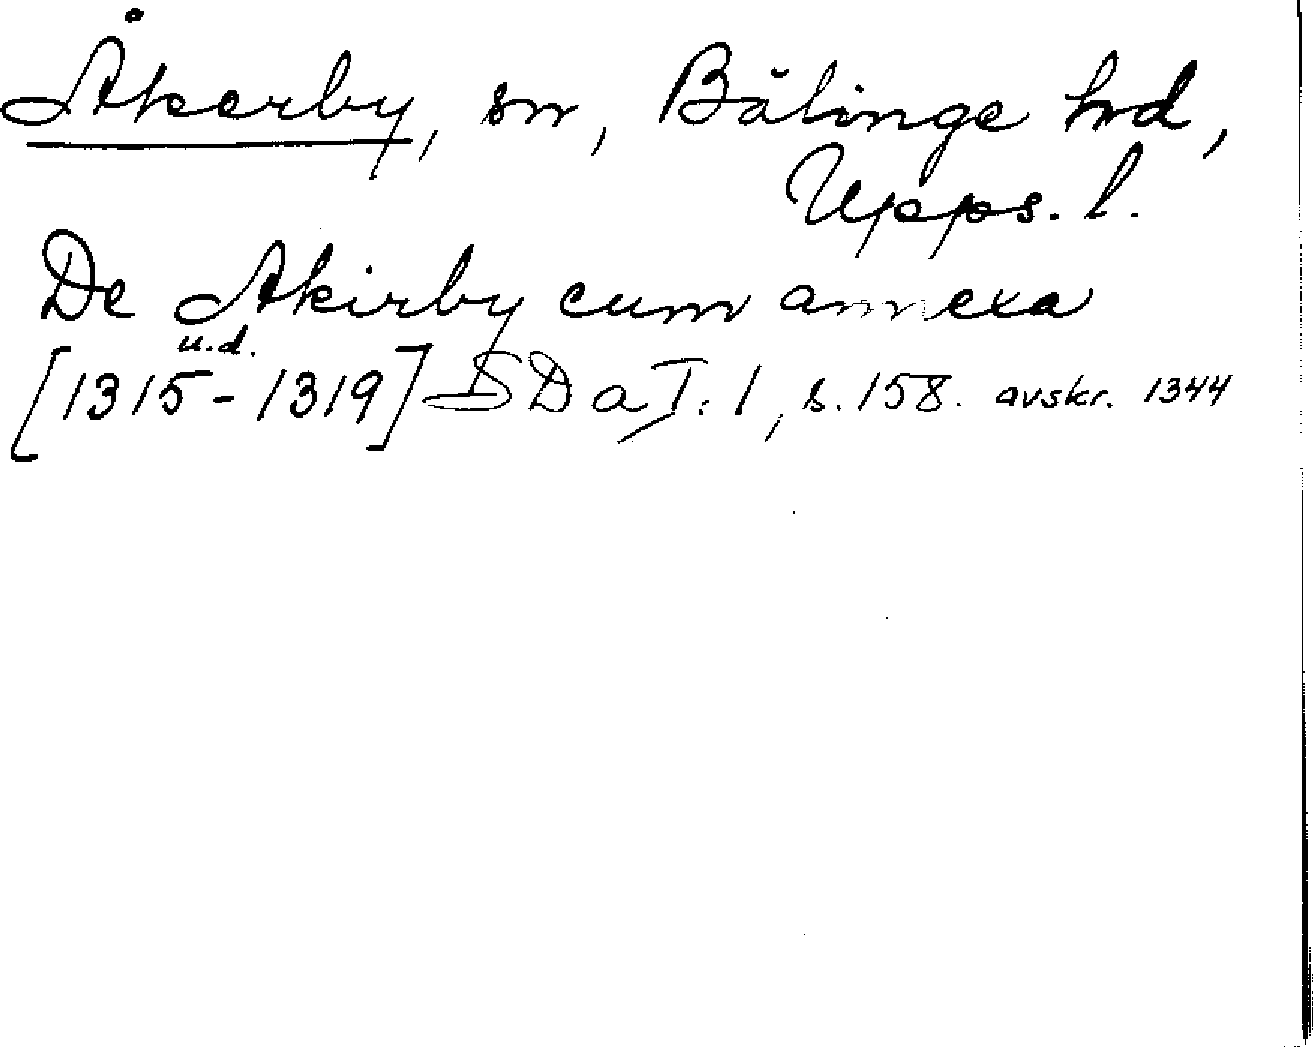 Åkerby, sn, Bälinge hrd,
Upps. l.
De Akirby cum annexa
u.d.
[1315-1319] SDa I:1, s. 158. avskr. 1344